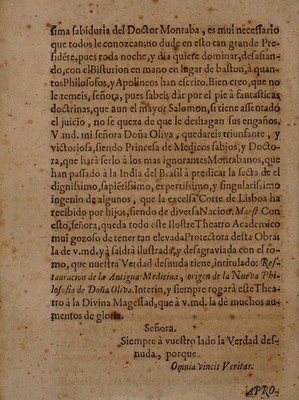 sima sabiduria del Doctor Montaba, es mui necessario
que todos le conozcan; no dude en esto tan grande Pre-
sidẽte, pues toda noche, y dia quiere dominar, desafian-
do, con el Bisturion en mano en lugar de baston, à quan-
tos Philosofos, y Apolineos han escrito. Bien creo, que no
le temeis, señora, pues sabeis dàr por el pie à fantasticas
doctrinas, que aun el mayor Salomon, si tiene assentado
el juicio, no se quexa de que le deshagan sus engaños.
V. md. mi señora Doña Oliva, quedareis triunfante, y
victoriosa, siendo Princesa de Medicos sabios, y Docto-
ra, que harà serlo à los mas ignorantes Montabanos, que
han passado à la India del Brasil à predicar la secta de el
dignissimo, sapiẽtissimo, expertissimo, y singularissimo
ingenio de algunos, que la excelsa Corte de Lisboa ha
recibido por hijos, siendo de diversa Nacion. Marfi. Con
esto, señora, queda todo este Ilustre Theatro Academico
mui gozoso de tener tan elevada Protectora desta Obra: i
la de v. md. y à saldrà ilustrada, y desagraviada con el ro-
mo, que nuestra Verdad desnuda tiene, intitulado: Res-
tauracion de la Antigua Medicina, origen de la Nueva Phi-
losofia de Doña Oliva. Interin, y siempre rogarà este Thea-
tro à la Divina Magestad, que à v. md. la dè muchos au-
mentos de gloria.
Señora.
Siempre à vuestro lado la Verdad des-
nuda, porque.
Omnia vincit Veritas.
APRO-